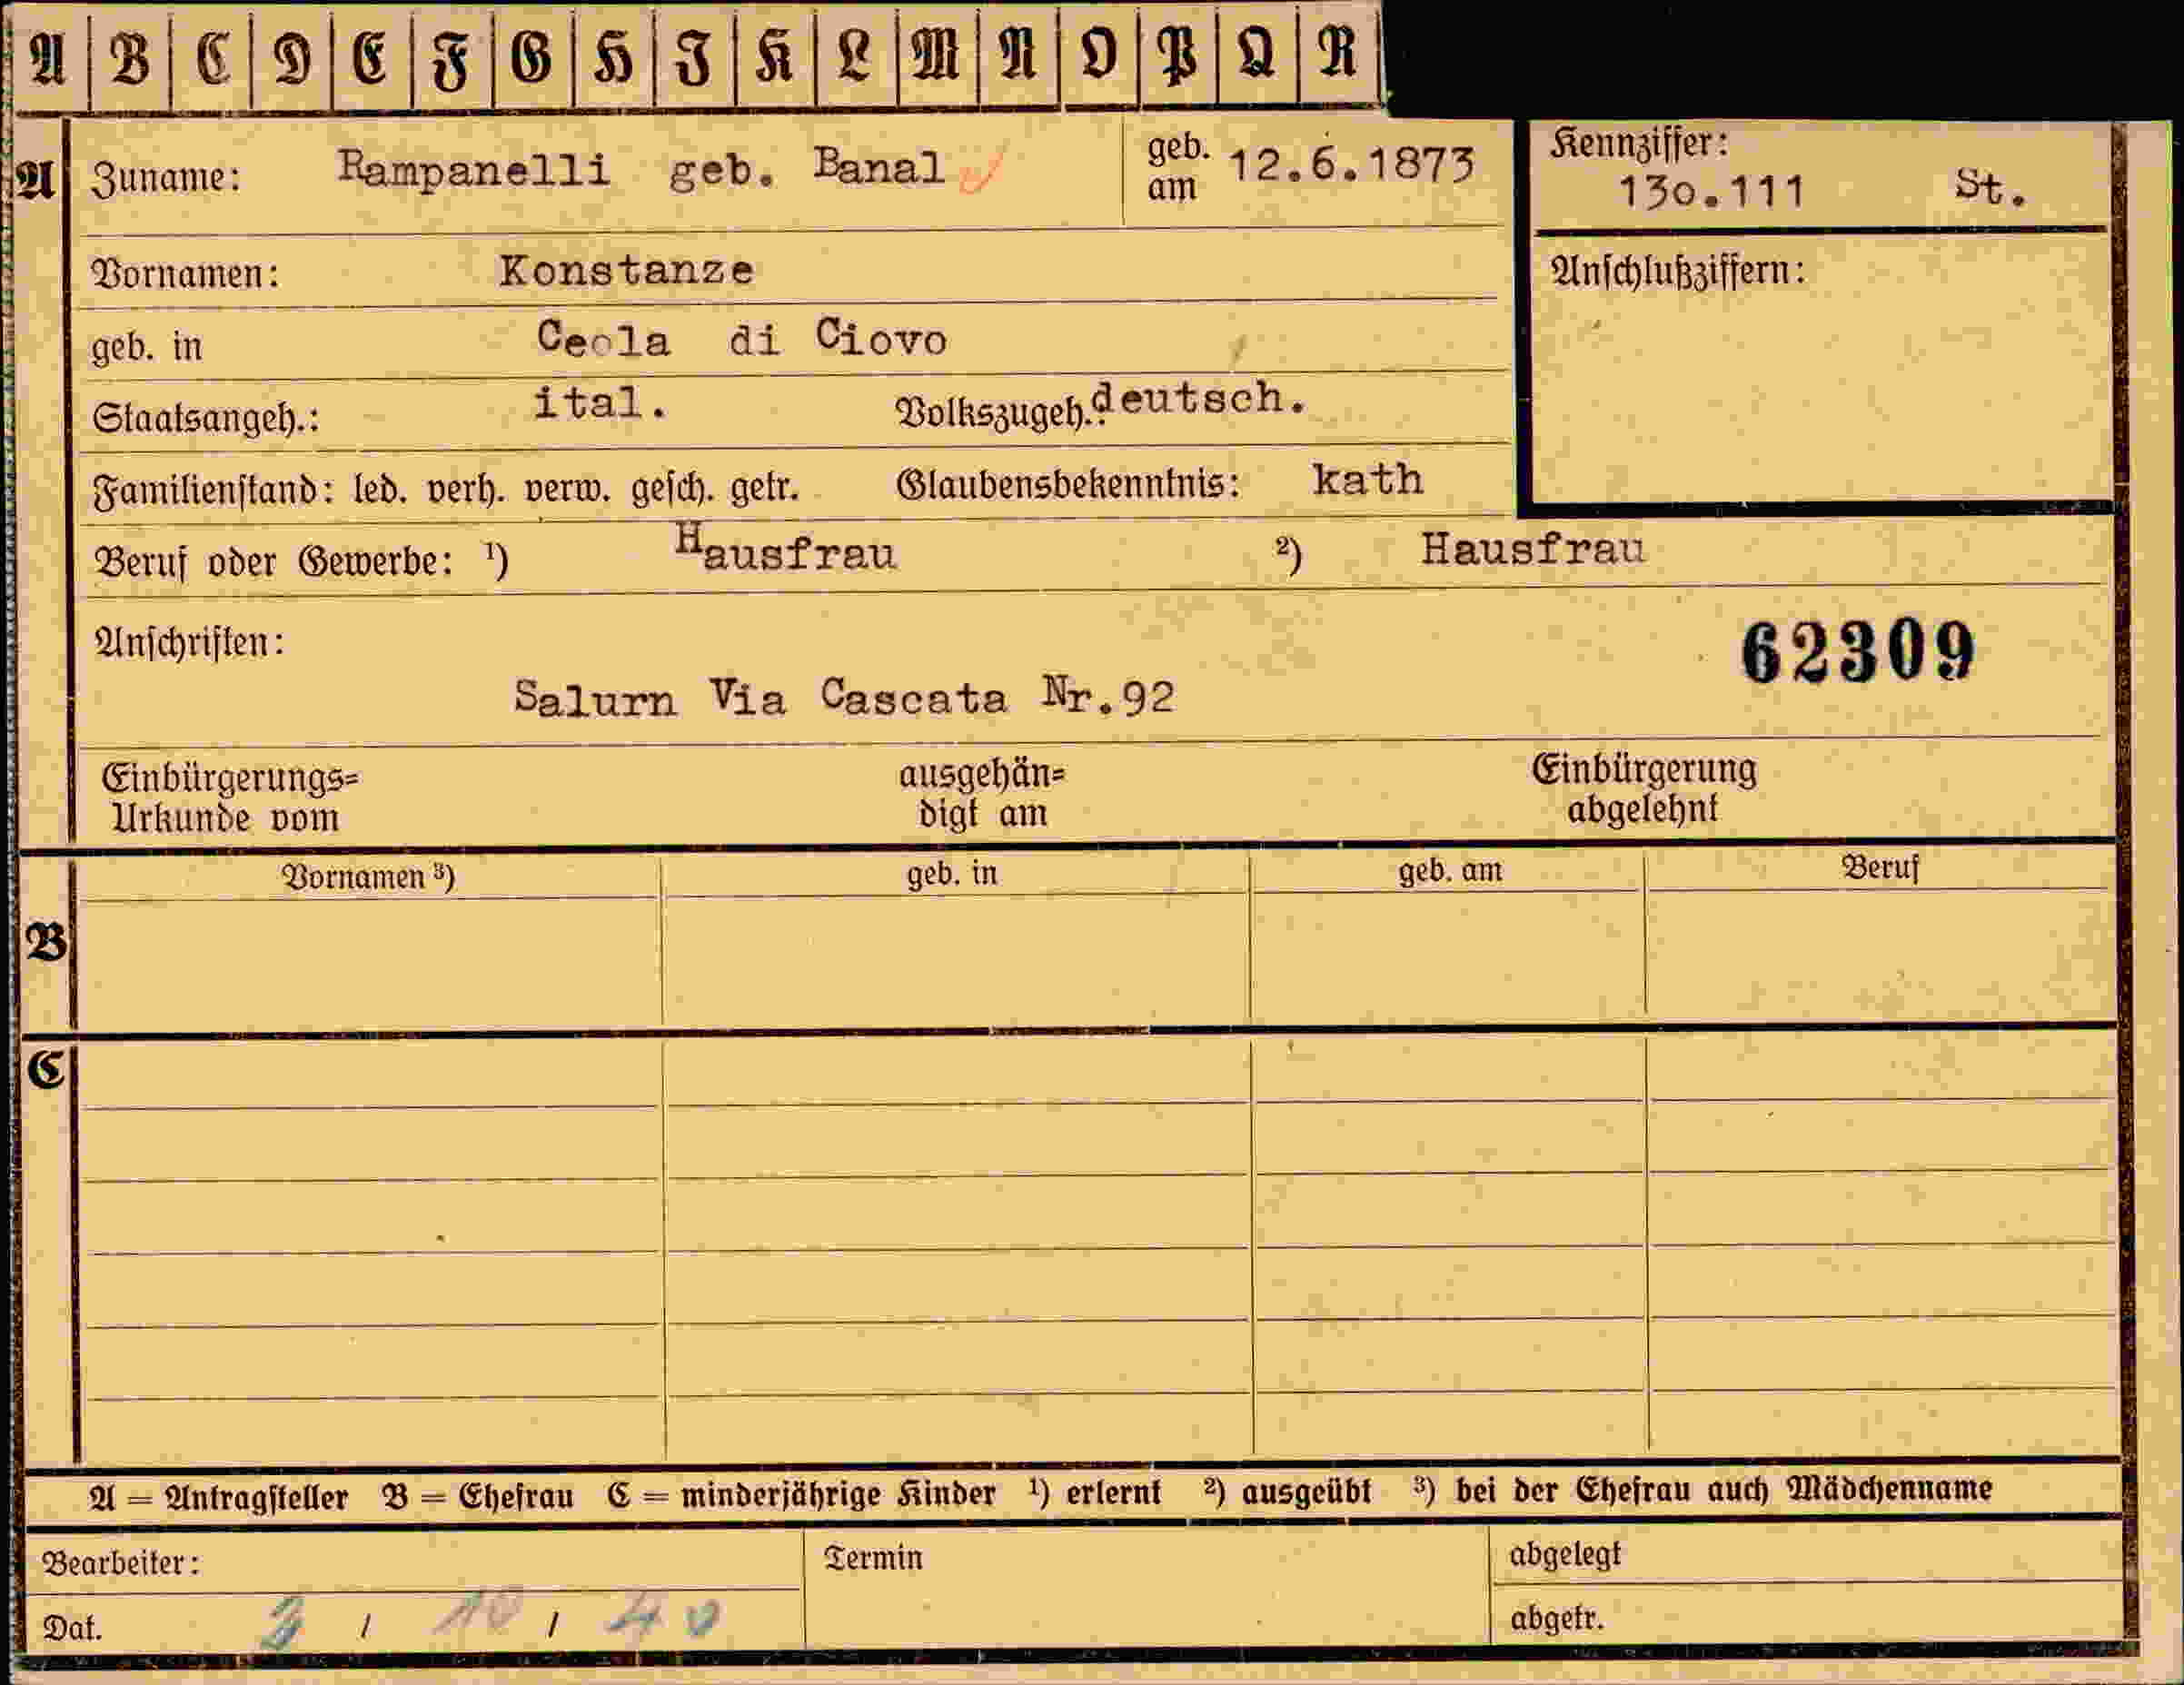 A B C D E F G H I K L M N O P Q R
A Zuname: Rampanelli geb. Banal geb. am 12.6.1873
Kennziffer: 13o.111 St.
Vornamen: Konstanze
Anschlußziffern:
geb. in Ceola di Ciovo
Staatsangeh.: ital. Volkszugeh.: deutsch.
Familienstand: led. verh. verw. gesch. getr. Glaubensbekenntnis: kath
Beruf oder Gewerbe: ¹) Hausfrau ²) Hausfrau
Anschriften: 62309
Salurn Via Cascata Nr.92
Einbürgerungs= ausgehän= Einbürgerung
Urkunde vom digt am abgelehnt
Vornamen ³) geb. in geb. am Beruf
B
C
A = Antragsteller B = Ehefrau C = minderjährige Kinder ¹) erlernt ²) ausgeübt ³) bei der Ehefrau auch Mädchenname
Bearbeiter: Termin abgelegt
Dat. 3 / 10 / 40 abgetr.